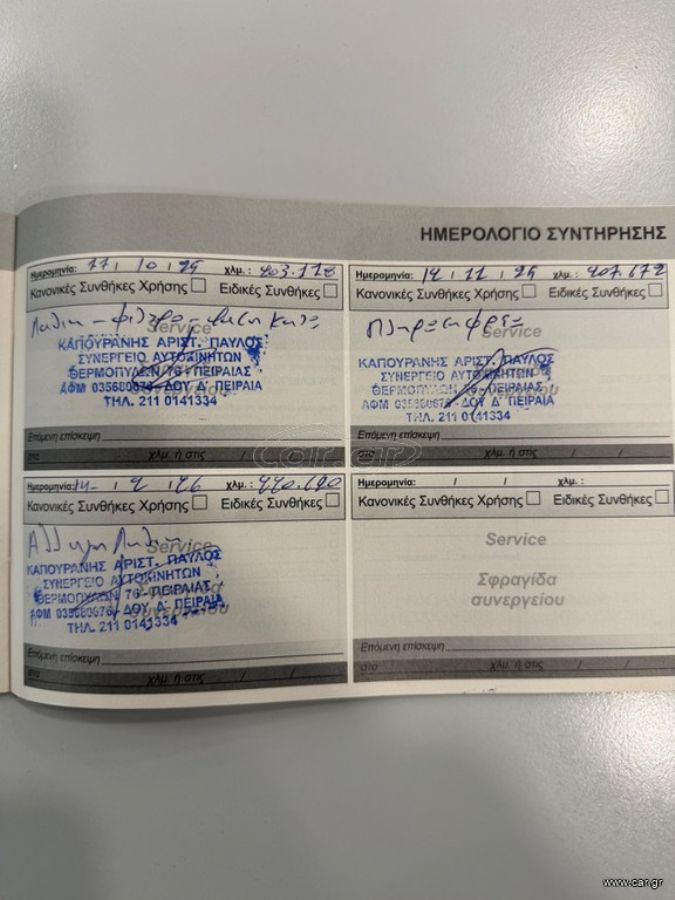 ΗΜΕΡΟΛΟΓΙΟ ΣΥΝΤΗΡΗΣΗΣ
Ημερομηνία: 17 / 10 / 25 χλμ.: 203.118
Κανονικές Συνθήκες Χρήσης Ειδικές Συνθήκες
Λάδια - φίλτρο -
Service
ΚΑΠΟΥΡΑΝΗΣ ΑΡΙΣΤ. ΠΑΥΛΟΣ
ΣΥΝΕΡΓΕΙΟ ΑΥΤΟΚΙΝΗΤΩΝ
ΘΕΡΜΟΠΥΛΩΝ 76 - ΠΕΙΡΑΙΑΣ
ΑΦΜ 035680676 - ΔΟΥ Δ' ΠΕΙΡΑΙΑ
ΤΗΛ. 211 0141334
Επόμενη επίσκεψη
στο χλμ. ή στις / /
Ημερομηνία: / 11 / 25 χλμ.: 207.672
Κανονικές Συνθήκες Χρήσης Ειδικές Συνθήκες
Service
ΚΑΠΟΥΡΑΝΗΣ ΑΡΙΣΤ. ΠΑΥΛΟΣ
ΣΥΝΕΡΓΕΙΟ ΑΥΤΟΚΙΝΗΤΩΝ
ΘΕΡΜΟΠΥΛΩΝ 76 - ΠΕΙΡΑΙΑΣ
ΑΦΜ 035680676 - ΔΟΥ Δ' ΠΕΙΡΑΙΑ
ΤΗΛ. 211 0141334
Επόμενη επίσκεψη
στο χλμ. ή στις / /
Ημερομηνία: 14 / 2 / 26 χλμ.:
Κανονικές Συνθήκες Χρήσης Ειδικές Συνθήκες
Αλλαγή Λάδια
Service
ΚΑΠΟΥΡΑΝΗΣ ΑΡΙΣΤ. ΠΑΥΛΟΣ
ΣΥΝΕΡΓΕΙΟ ΑΥΤΟΚΙΝΗΤΩΝ
ΘΕΡΜΟΠΥΛΩΝ 76 - ΠΕΙΡΑΙΑΣ
ΑΦΜ 035680676 - ΔΟΥ Δ' ΠΕΙΡΑΙΑ
ΤΗΛ. 211 0141334
Επόμενη επίσκεψη
στο χλμ. ή στις / /
Ημερομηνία: / / χλμ.:
Κανονικές Συνθήκες Χρήσης Ειδικές Συνθήκες
Service
Σφραγίδα
συνεργείου
Επόμενη επίσκεψη
στο χλμ. ή στις / /
car.gr
www.car.gr